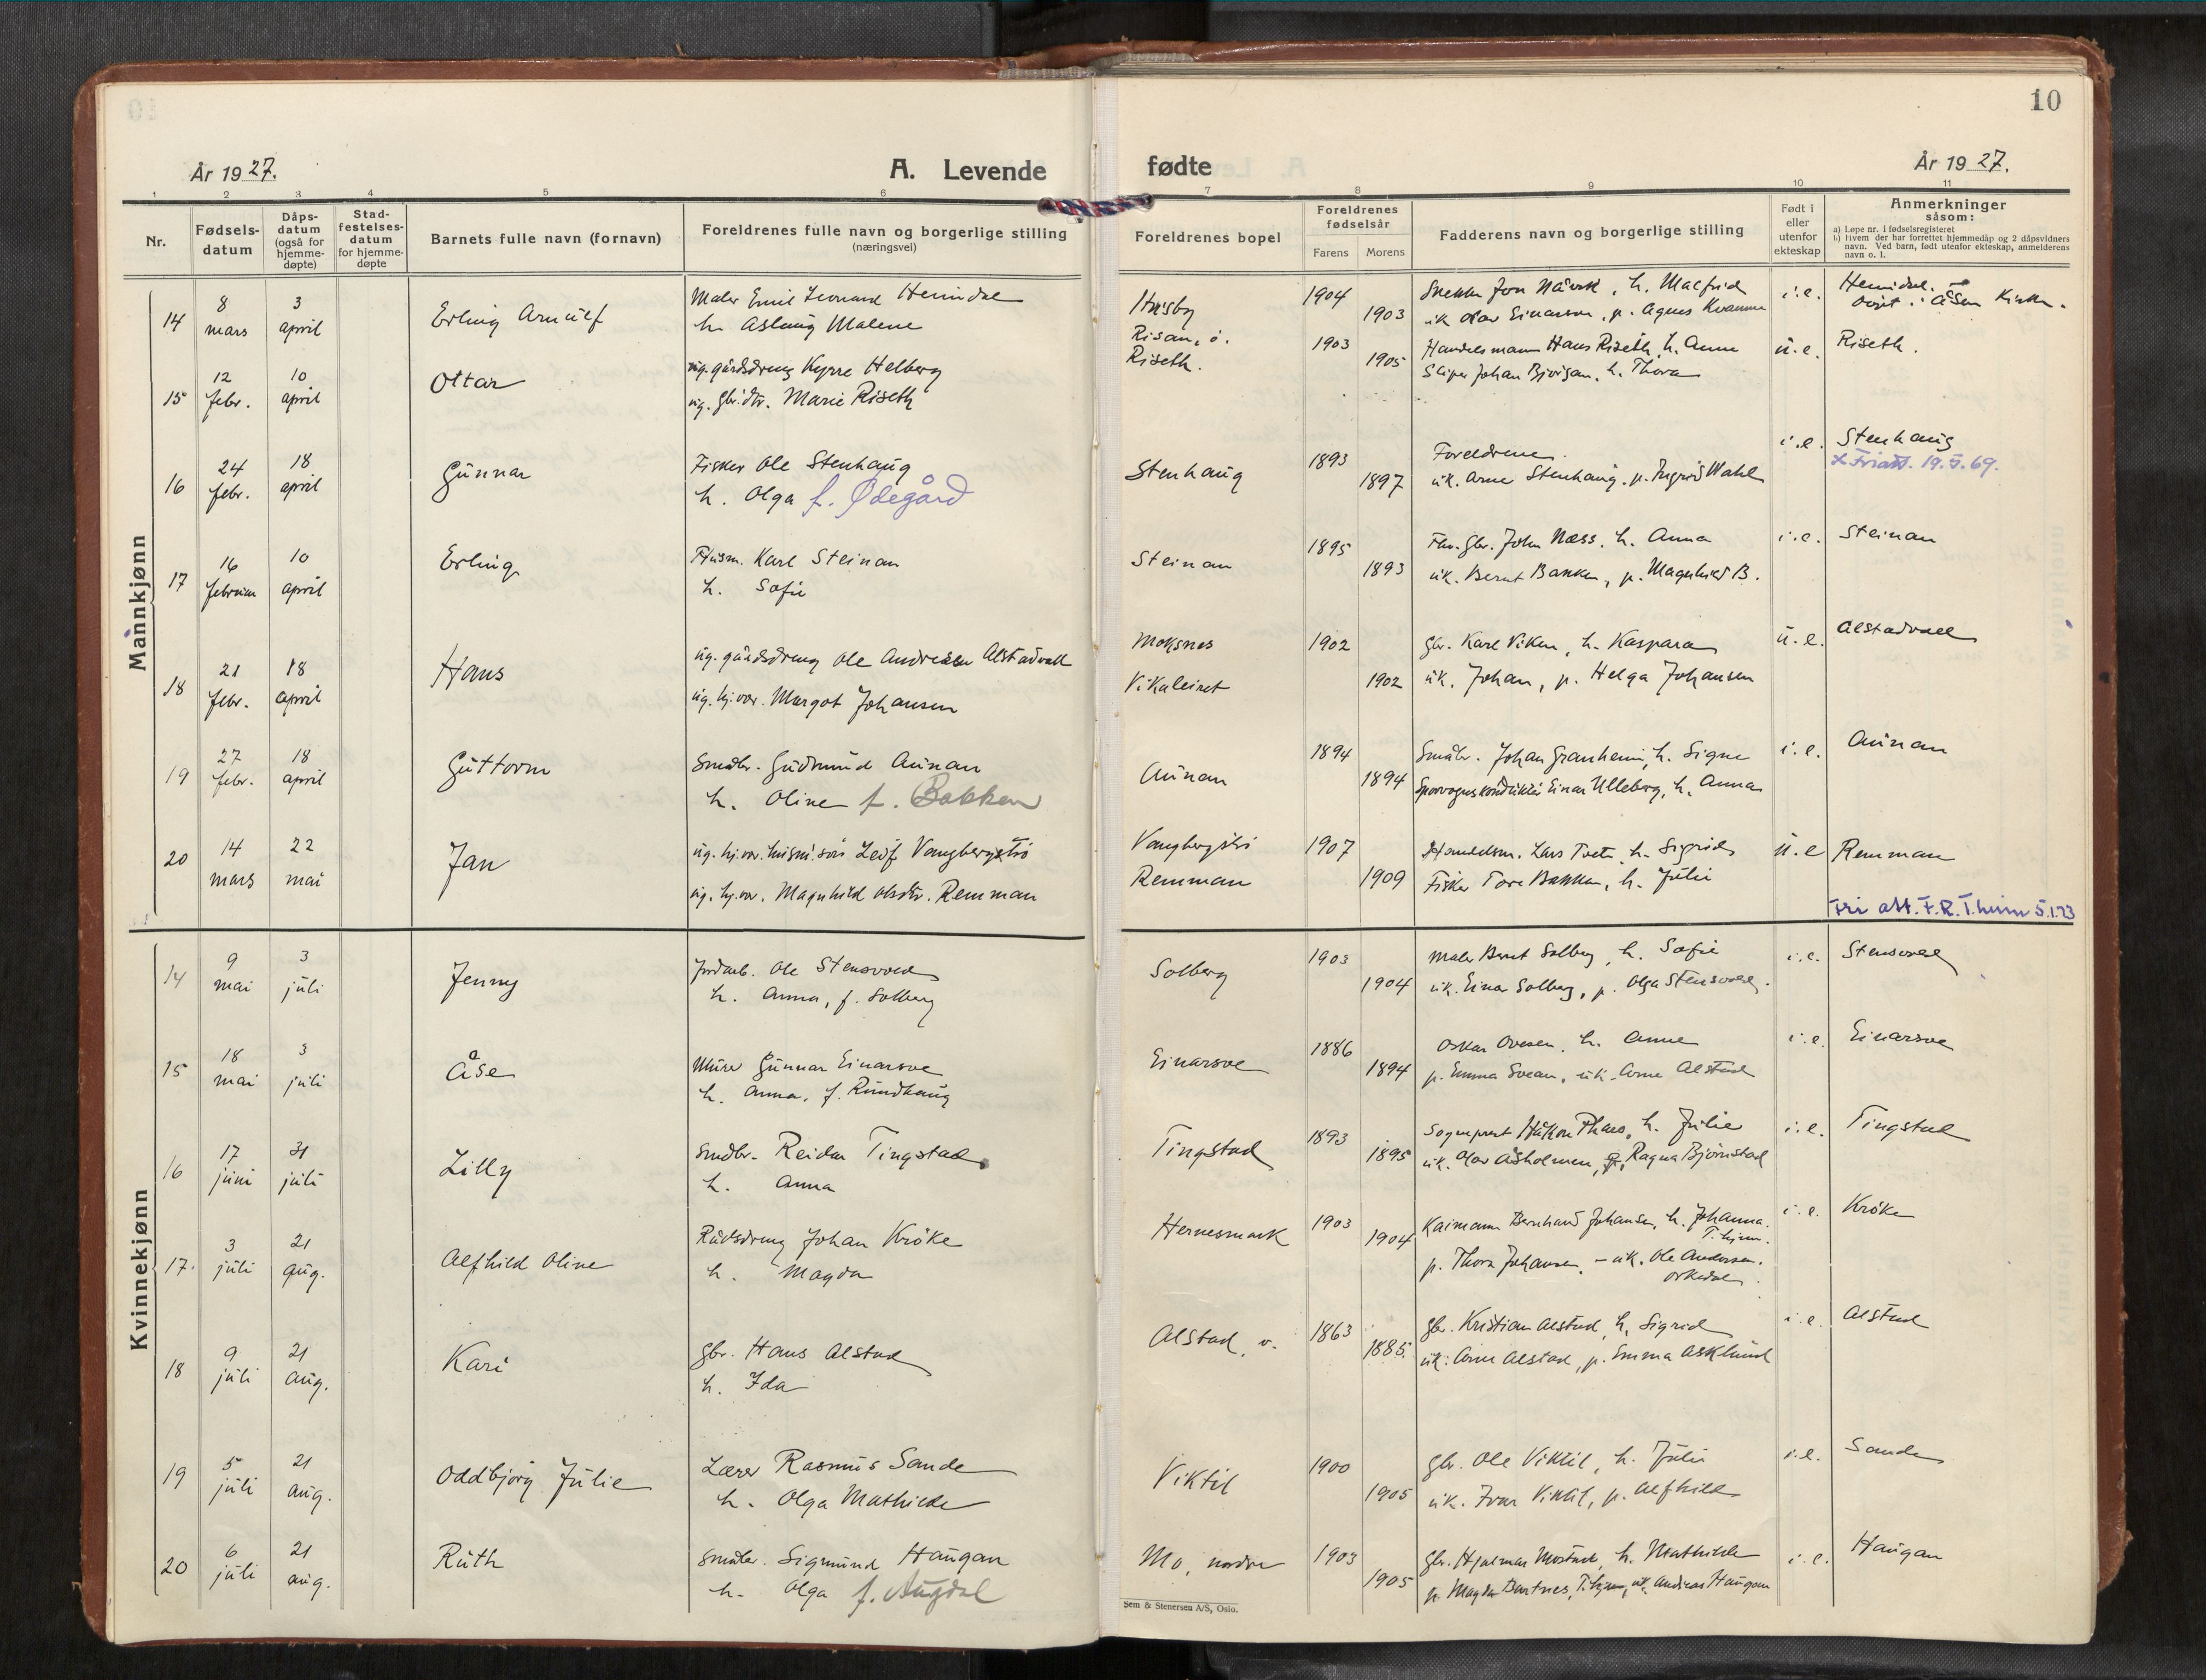 10
År 1927.
A. Levende fødte
År 1927.
1 2 3 4 5 6 7 8 9 10 11
Nr.
Fødsels-datum
Dåps-datum (også for hjemme-døpte)
Stad-festelses-datum for hjemme-døpte
Barnets fulle navn (fornavn)
Foreldrenes fulle navn og borgerlige stilling (næringsvei)
Foreldrenes bopel
Foreldrenes fødselsår
Farens Morens
Fadderens navn og borgerlige stilling
Født i eller utenfor ekteskap
Anmerkninger såsom:
a) Løpe nr. i fødselsregisteret
b) Hvem der har forrettet hjemmedåp og 2 dåpsvidners navn. Ved barn, født utenfor ekteskap, anmelderens navn o. l.
Mannkjønn
14 8 mars 3 april Erling Arnulf
Maler Emil Leonard Hemidal
h. Aslaug Malene
Husby 1904 1903
Snekker Jon Nåvik, h. Malfrid
uk. Olav Einarson, p. Agnes Kvamme
i.e. Hemidal. i Åsen Kirke.
15 12 febr. 10 april Ottar
ug. gårdsdreng Kyrre Helberg
ug. gbr.dtr. Marie Riseth
Risan, ö.
Riseth.
1903 1905
Handelsmann Hans Riseth, h. Anne
Sliper Johan Bjørgan, h. Thora
u.e. Riseth.
16 24 febr. 18 april Gunnar
Fisker Ole Stenhaug
h. Olga f. Ødegård
Stenhaug 1893 1897
Foreldrene.
uk. Arne Stenhaug, p. Ingrid Wahl
i.e. Stenhaug
x Friatt. 19.5.69.
17 16 februar 10 april Erling
Husm. Karl Steinan
h. Sofie
Steinan 1895 1893
Fhv. gbr. John Næss, h. Anna
uk. Bernt Bakken, p. Magnhild B.
i.e. Steinan
18 21 febr. 18 april Hans
ug. gårdsdreng Ole Andreasen Alstadvall
ug. hj.vær. Margot Johansen
Moksnes
Vikaleiret
1902 1902
gbr. Karl Viken, h. Kaspara
uk. Johan, p. Helga Johansen
u.e. Alstadvall
19 27 febr. 18 april Guttorm
Småbr. Gudmund Aunan
h. Oline f. Bakken
Aunan 1894 1894
Småbr. Johan Granheim, h. Signe
Sporvognskonduktör Einar Ulleberg, h. Anna
i.e. Aunan
20 14 mars 22 mai Jan
ug. hj.vær. husm. sön Leif Vangbergstrø
ug. hj.vær. Magnhild Olsdtr. Remman
Vangbergstrø
Remman
1907 1909
Handelsm. Lars Tveta, h. Sigrid
Fisker Tore Bakken, h. Julie
u.e Remman
Fri att. F.R. T.heim 5.1.73
Kvinnekjønn
14 9 mai 3 juli Jenny
Jordarb. Ole Stensvold
h. Anna, f. Solberg
Solberg 1903 1904
Maler Bernt Solberg, h. Sofie
uk. Einar Solberg, p. Olga Stensvold.
i.e. Stensvold
15 18 mai 3 juli Åse
Murer Gunnar Einarsve
h. Anna, f. Rundhaug
Einarsve 1886 1894
Oskar Ovesen, h. Anne
p. Emma Svean, uk. Arne Alstad
i.e. Einarsve
16 17 juni 31 juli Lilly
Småbr. Reidar Tingstad
h. Anna
Tingstad 1893 1895
Sogneprest Håkon Thaas, h. Julie
uk. Olav Åsholmen, p. Ragna Bjørnstad
i.e. Tingstad
17. 3 juli 21 aug. Alfhild Oline
Rådsdreng Johan Krøke
h. Magda
Hernesmark 1903 1904
Kaimann Bernhard Johansen, h. Johanna. T.hjem.
p. Thora Johansen. – uk. Ole Andersen. Orkedal.
i.e. Krøke
18 9 juli 21 aug. Kari
gbr. Hans Alstad
h. Ida
Alstad, v. 1863 1885.
gbr. Kristian Alstad, h. Sigrid
uk. Arne Alstad, p. Emma Asklund
i.e. Alstad
19 5 juli 21 aug. Oddbjörg Julie
Lærer Rasmus Sande
h. Olga Mathilde
Viktil 1900 1905
gbr. Ole Viktil, h. Julie
uk. Ivar Viktil, p. Alfhild
i.e. Sande
20 6 juli 21 aug. Ruth
Småbr. Sigmund Haugan
h. Olga f. Augdal
Mo, nordre 1903 1905
gbr. Hjalmar Mostad, h. Mathilde
p. Magda Bartnes, T.hjem, uk. Andreas Haugan
i.e. Haugan
Sem & Stenersen A/S, Oslo.